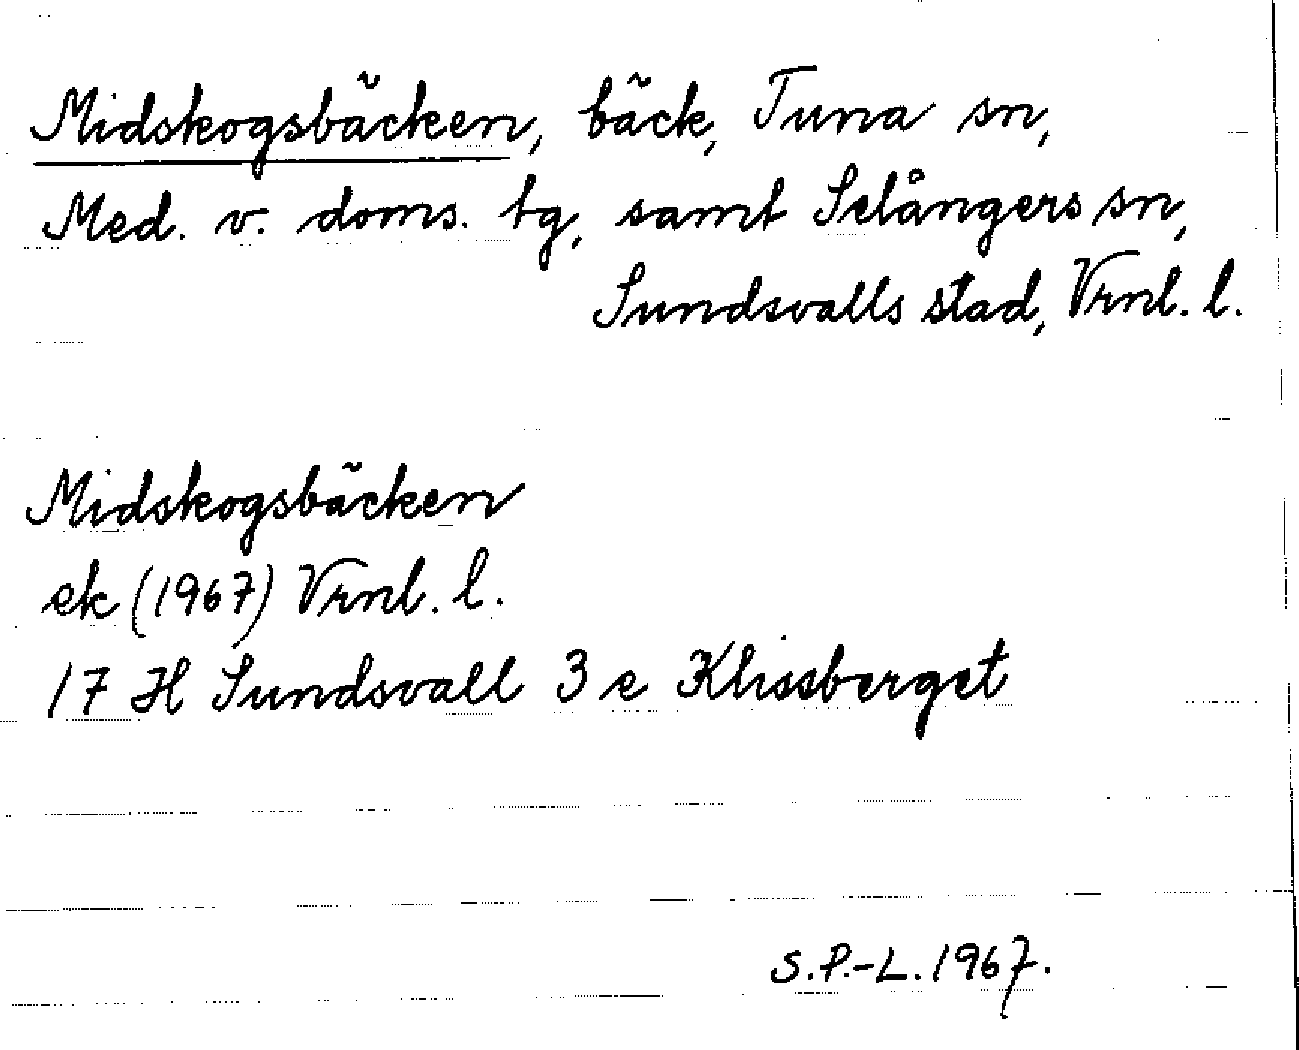 Midskogsbäcken, bäck, Tuna sn,
Med. v. doms. tg, samt Selångers sn,
Sundsvalls stad, Vrnl. l.
Midskogsbäcken
ek (1967) Vrnl. l.
17 H Sundsvall 3 e Klissberget
S.P.-L. 1967.